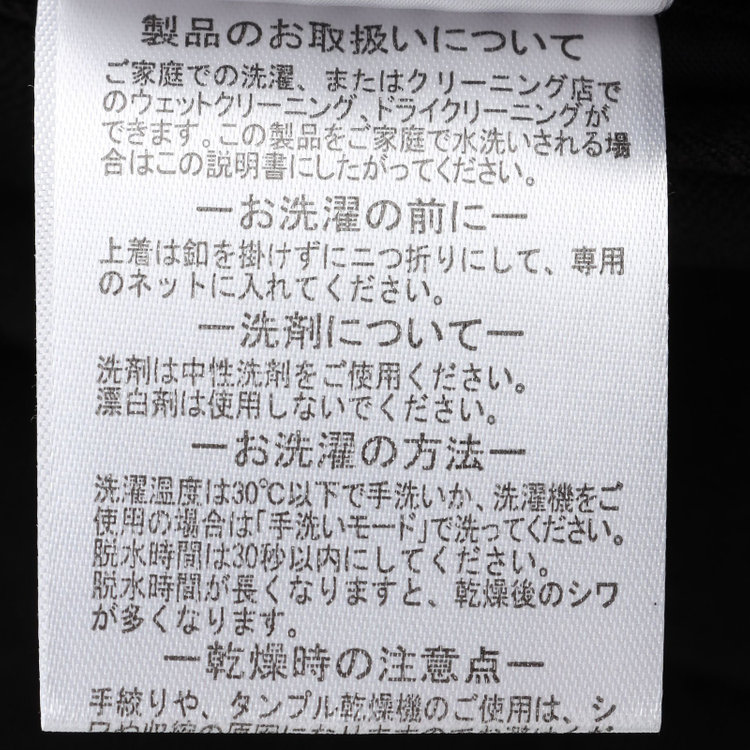 製品のお取扱いについて
ご家庭での洗濯、またはクリーニング店で
のウェットクリーニング、ドライクリーニングが
できます。この製品をご家庭で水洗いされる場
合はこの説明書にしたがってください。
ーお洗濯の前にー
上着は釦を掛けずに二つ折りにして、専用
のネットに入れてください。
ー洗剤についてー
洗剤は中性洗剤をご使用ください。
漂白剤は使用しないでください。
ーお洗濯の方法ー
洗濯温度は30℃以下で手洗いか、洗濯機をご
使用の場合は「手洗いモード」で洗ってください。
脱水時間は30秒以内にしてください。
脱水時間が長くなりますと、乾燥後のシワ
が多くなります。
ー乾燥時の注意点ー
手絞りや、タンブル乾燥機のご使用は、シ